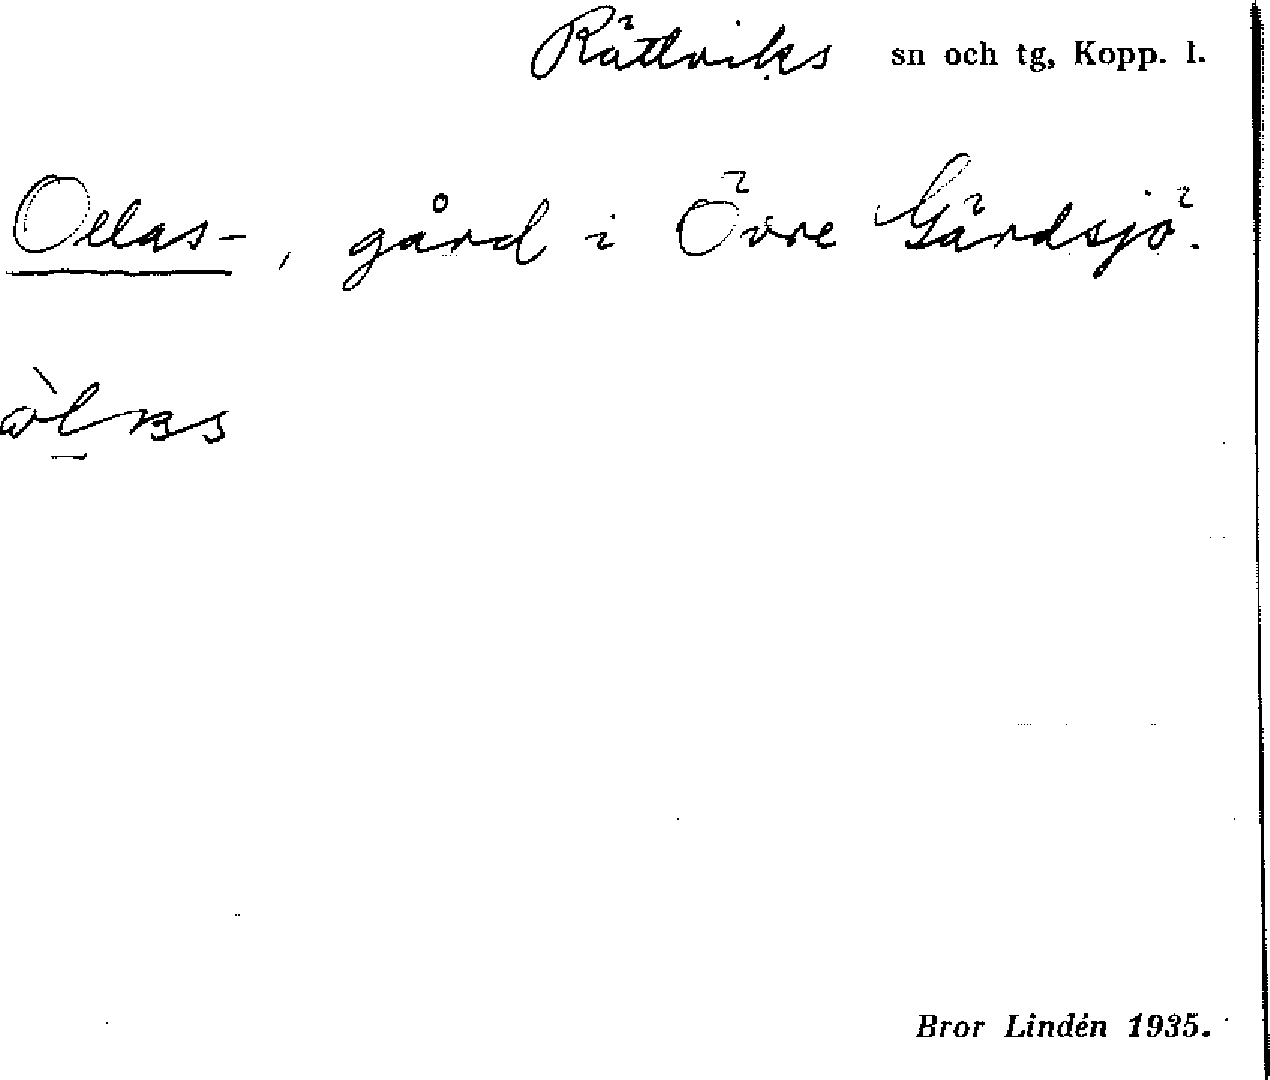 Rättviks sn och tg, Kopp. l.
Ollas-, gård i Övre Gärdsjö.
Bror Lindén 1935.